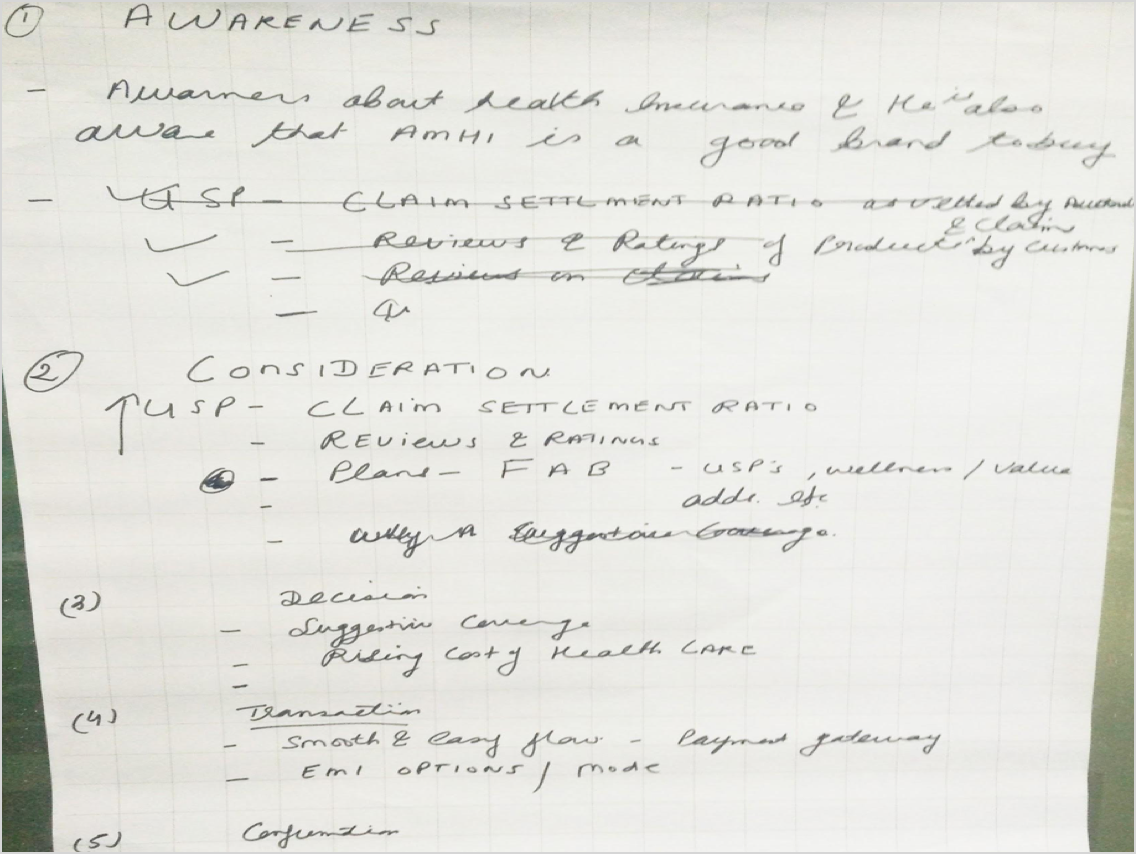 ① AWARENESS
- Awarners about health Insurance & He is also
aware that AMHI is a good brand to buy
- USP - CLAIM SETTLMENT RATIO as vetted by
& Claim
- Reviews & Ratings of Products by Customers
- Reviews on Claims
-
② CONSIDERATION
↑ USP - CLAIM SETTLEMENT RATIO
- REVIEWS & RATINGS
- Plans - FAB - USP's, wellness / Value
- adds. etc
- Suggestive Coverage.
(3) Decision
- Suggestive Coverage
- Rising Cost of Health CARE
-
(4) Transaction
- Smooth & easy flow - Payment gateway
- EMI OPTIONS / mode
(5) Confirmation